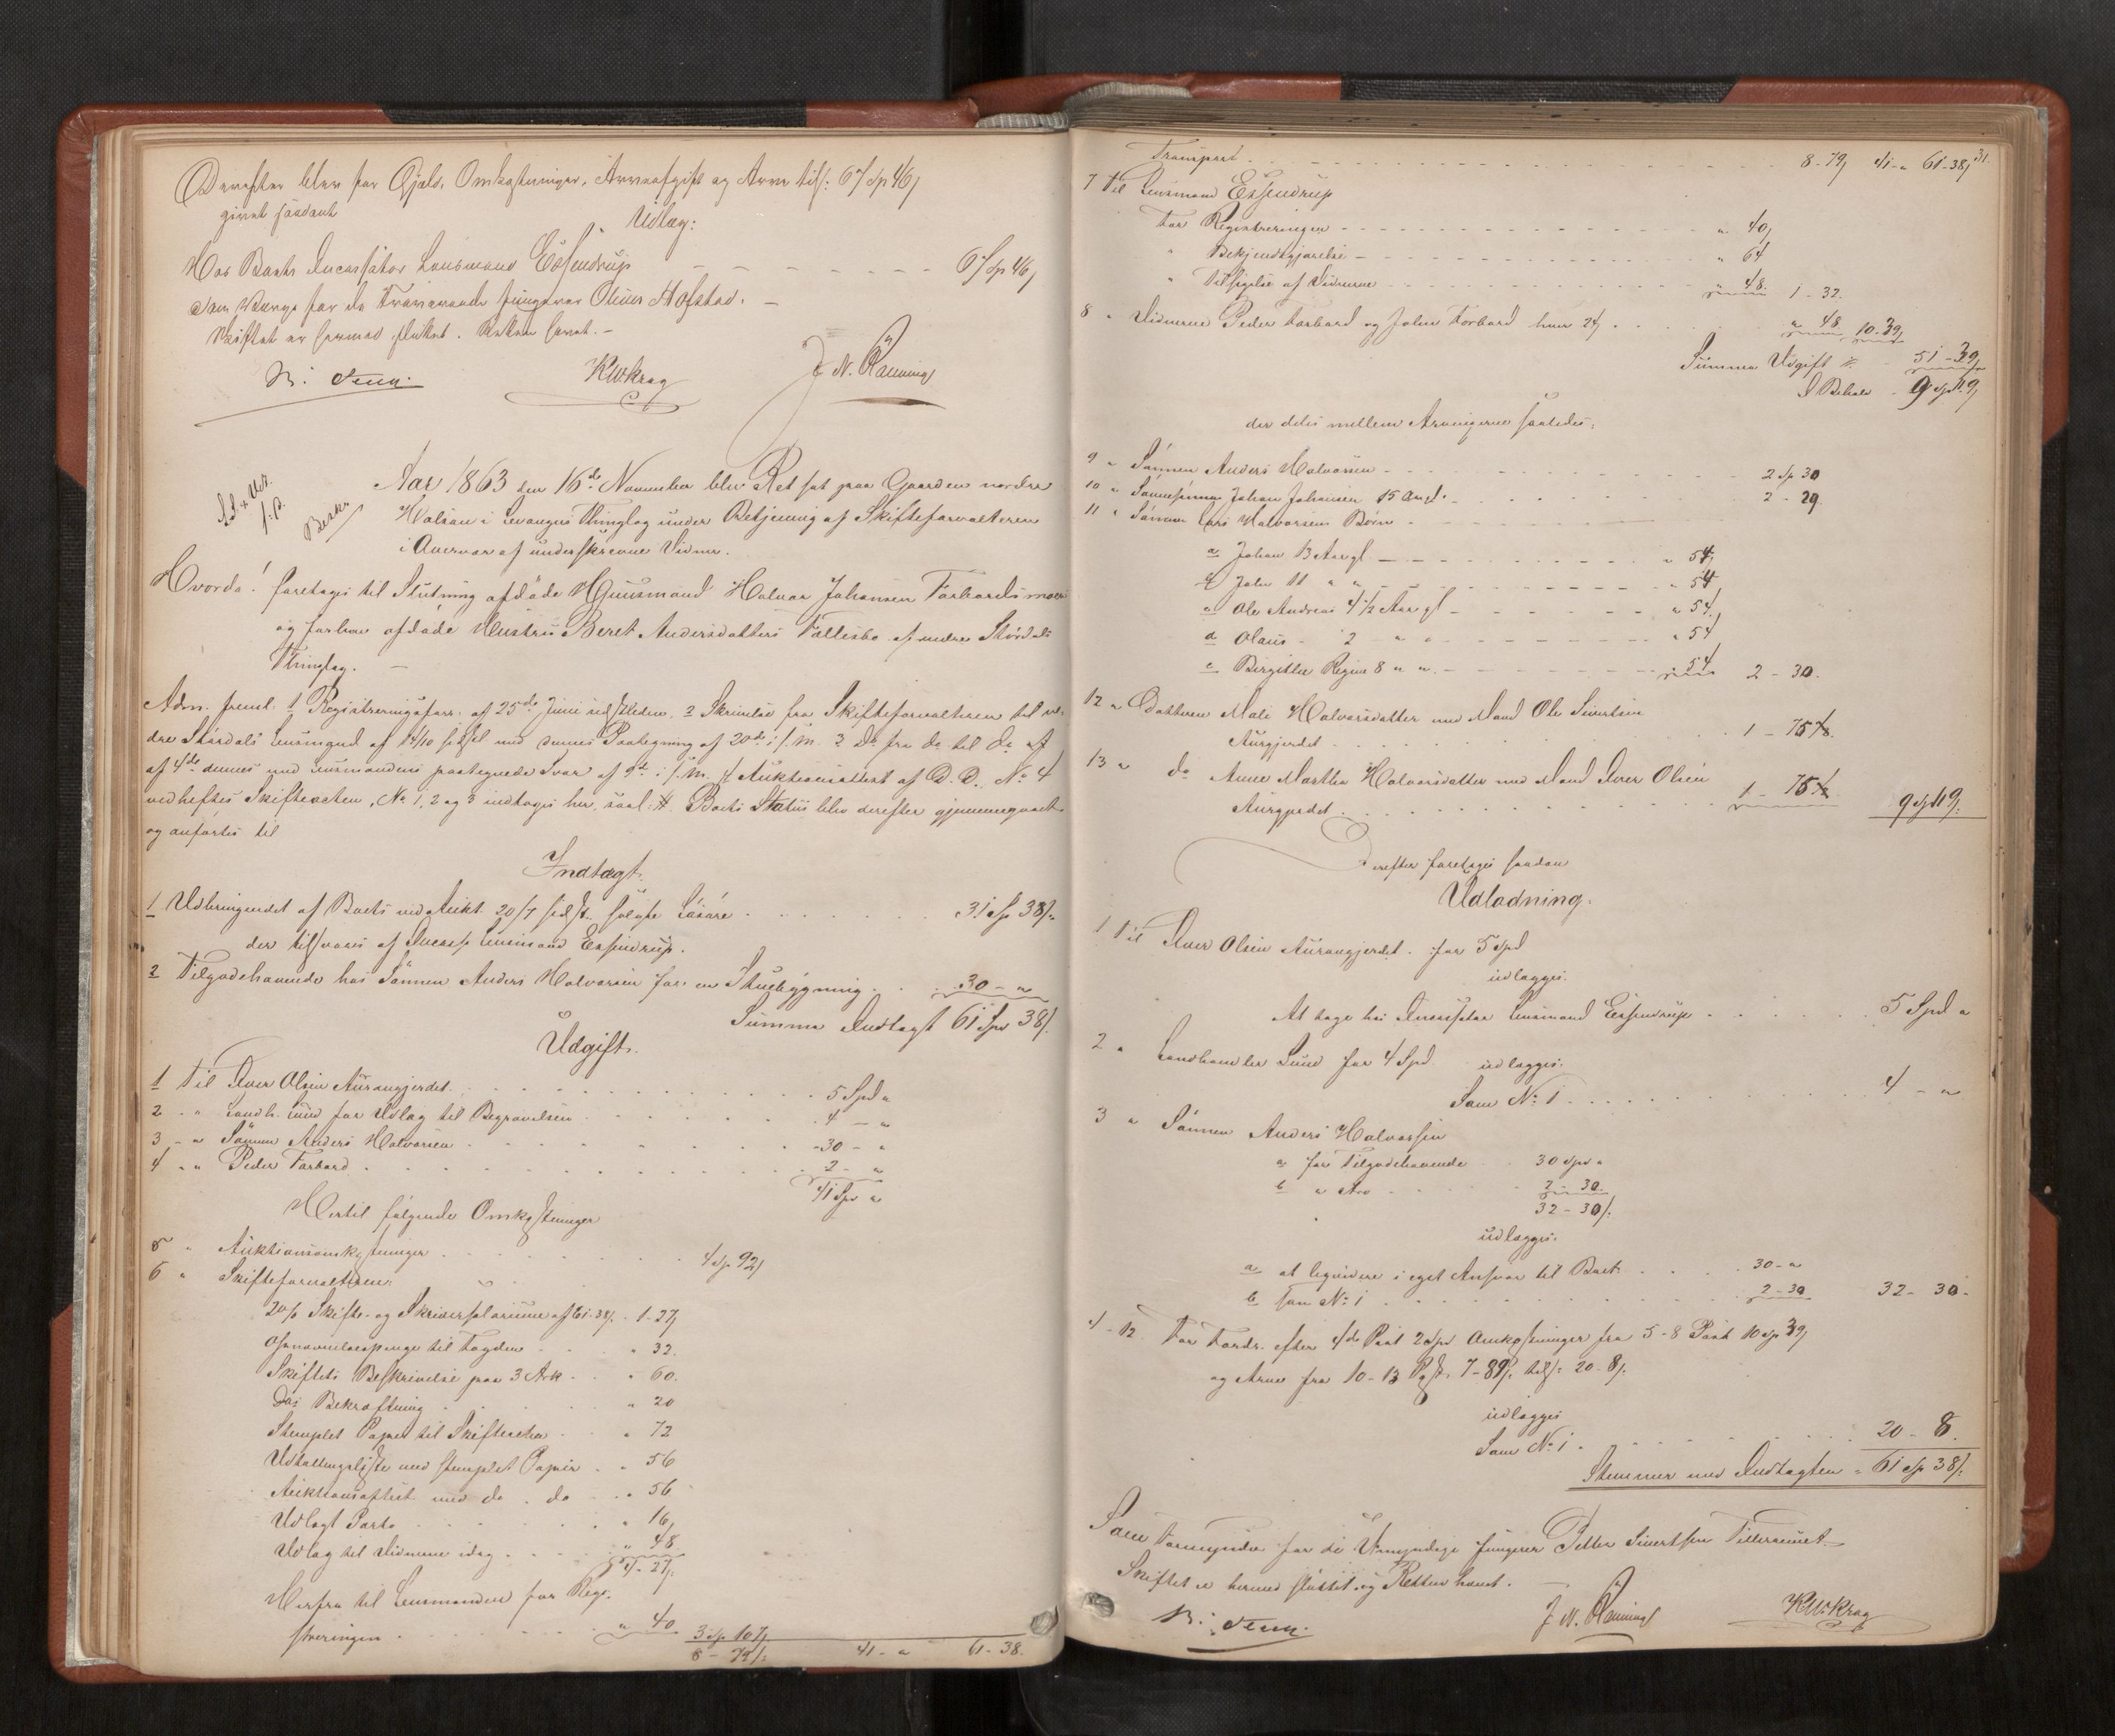 Derefter blev for Gjæld, Omkostninger, Arveafgift og Arv tils: 67 Sp 46 ,
givet saadant
Udlæg:
Hos Boets Incassator Lensmand Essendrup - - - - - - 67 Sp 46 ,
Som Værge for de Fraværende fungerer Olaus Hofstad. -
Skiftet er hermed sluttet. Retten hævet. -
KWKrag
J N. Rönning
Beskr
Aar 1863 den 16de November blev Ret sat paa Gaarden nordre
Halsan i Levanger Thinglag under Betjening af Skifteforvalteren
i Overvær af underskrevne Vidner.
Hvorda! foretages til Slutning afdøde Huusmand Halvor Johansen Forbordsmoen
og forhen afdøde Hustru Beret Andersdatters Fællesbo af nedre Størdals
Thinglag. -
Adm. freml. 1 Registreringsforr. af 25de Juni sidstleden, 2 Skrivelse fra Skifteforvalteren til ne-
dre Størdals Lensmand af 14/10 sidstl. med dennes Paategning af 20de i f. M. 3 Do fra do til do af
af 4de dennes med Lensmandens paategnede Svar af 9de i f. M. 4 Auktionsattest af D. D. No 4
vedheftes Skifteacten, No 1, 2 og 3 indtages her, saal: #. Boets Status blev derefter gjennemgaaet
og anførtes til
Indtægt.
1 Udbringendet af Boets ved Aukt. 20/7 sidstl. solgte Løsøre . . . 31 Sp 38 /.
der tilsvares af Incass. Lensmand Essendrup.
2 Tilgodehavende hos Sönnen Anders Halvorsen for en Stuebygning . . . 30 - "
Summa Indtægt 61 Spd 38 /.
Udgift.
1 Til Iver Olsen Aurangjerdet . . . 5 Spd "
2 - " Landh. Lund for Udlæg til Begravelsen . . . 4 - "
3 - " Sönnen Anders Halvorsen . . . 30 - "
4 - " Peder Forbord . . . 2 - "
41 Spd "
Hertil følgende Omkostninger
5 " Auktionsomkostninger . . . 4 Sp 92 ,
6 " Skifteforvalteren:
2% Skifte- og Skriversalarium af 61-38 /. - 1-27 ,
til Fogden . . . " 32.
Skiftets Beskrivelse paa 3 Ark . . . " 60.
Dets Bekræftning . . . " 20
Stemplet Papir til Skifteacten . . . " 72
Udlodningsliste med stemplet Papir . . " 56
Auktionsattest med do. do . . " 56
Udlagt Porto . . . " 16 ,
Udlæg til Vidnerne idag . . . " 48.
4 - 27 ,
Herfra til Lensmanden for Regi-
streringen . . . " 40. 3 Sp 107 ,
8 - 79 /. 41 - " 61 - 38.
31.
Transport . . . 8-79 , 41 - " 61-38 ,
7 Til Lensmand Essendrup
For Registreringen . . . " 40 ,
" Bekjendtgjørelse . . . " 64
" Tilsigelse af Vidnerne . . . " 48. 1 - 32.
8 " Vidnerne Peder Forbord og John Forbord hver 24 , . . . " 48. 10 - 39 ,
Summa Udgift /. 51 - 39 ,
I Behold 9 Spd 119 ,
der deles mellem Arvingerne saaledes:
9 " Sönnen Anders Halvorsen . . . 2 Sp 30
10 " Sønnesønnen Johan Johansen 15 Aar gl. . . . 2 - 29.
11 " Sønnen Lars Halvorsens Børn . . .
a Johan 13 Aar gl . . . " 54 ,
b John 11 " " . . . " 54
c Ole Andreas 4 1/2 Aar gl . . . " 54 ,
d Olaus - 2 " " . . . " 54
e Birgitte Regine 8 " " . . . " 54. 2 - 30.
12 " Datteren Mali Halvorsdatter med Mand Ole Sivertsen
Aurgjerdet . . . 1 - 75.
13 " do Anne Martha Halvorsdatter med Mand Iver Olsen
Aurgjerdet . . . 1 - 75 . 9 Spd 119.
Derefter foretoges saadan
Udlodning.
1 Til Iver Olsen Aurangjerdet for 5 Spd
udlægges.
At tage hos Incassator Lensmand Essendrup . . . 5 Spd "
2 " Landhandler Lund for 4 Spd. udlægges.
Som No 1 . . . 4 - "
3 " Sönnen Anders Halvorsen
a for Tilgodehavende . . 30 Spd "
b " Arv . . . 2 - 30.
32 - 30 /.
udlægges.
a at liqvidere i eget Ansvar til Boet . . . 30 - "
b som No 1 . . . 2 - 30 32 - 30 -
4 - 12 For Fordr. efter 4de Post 2 Spd Omkostninger fra 5-8 Post 10 Sp 39 ,
og Arv fra 10-13 Post 7-89 /. tils: 20-8 /.
udlægges
Som No 1 . . . 20 - 8.
Stemmer med Indtægten = 61 Sp 38 /.
Som Formynder for de Umyndige fungerer Petter Sivertsen
Skiftet er hermed sluttet og Retten hævet. -
J N. Rönning
KWKrag